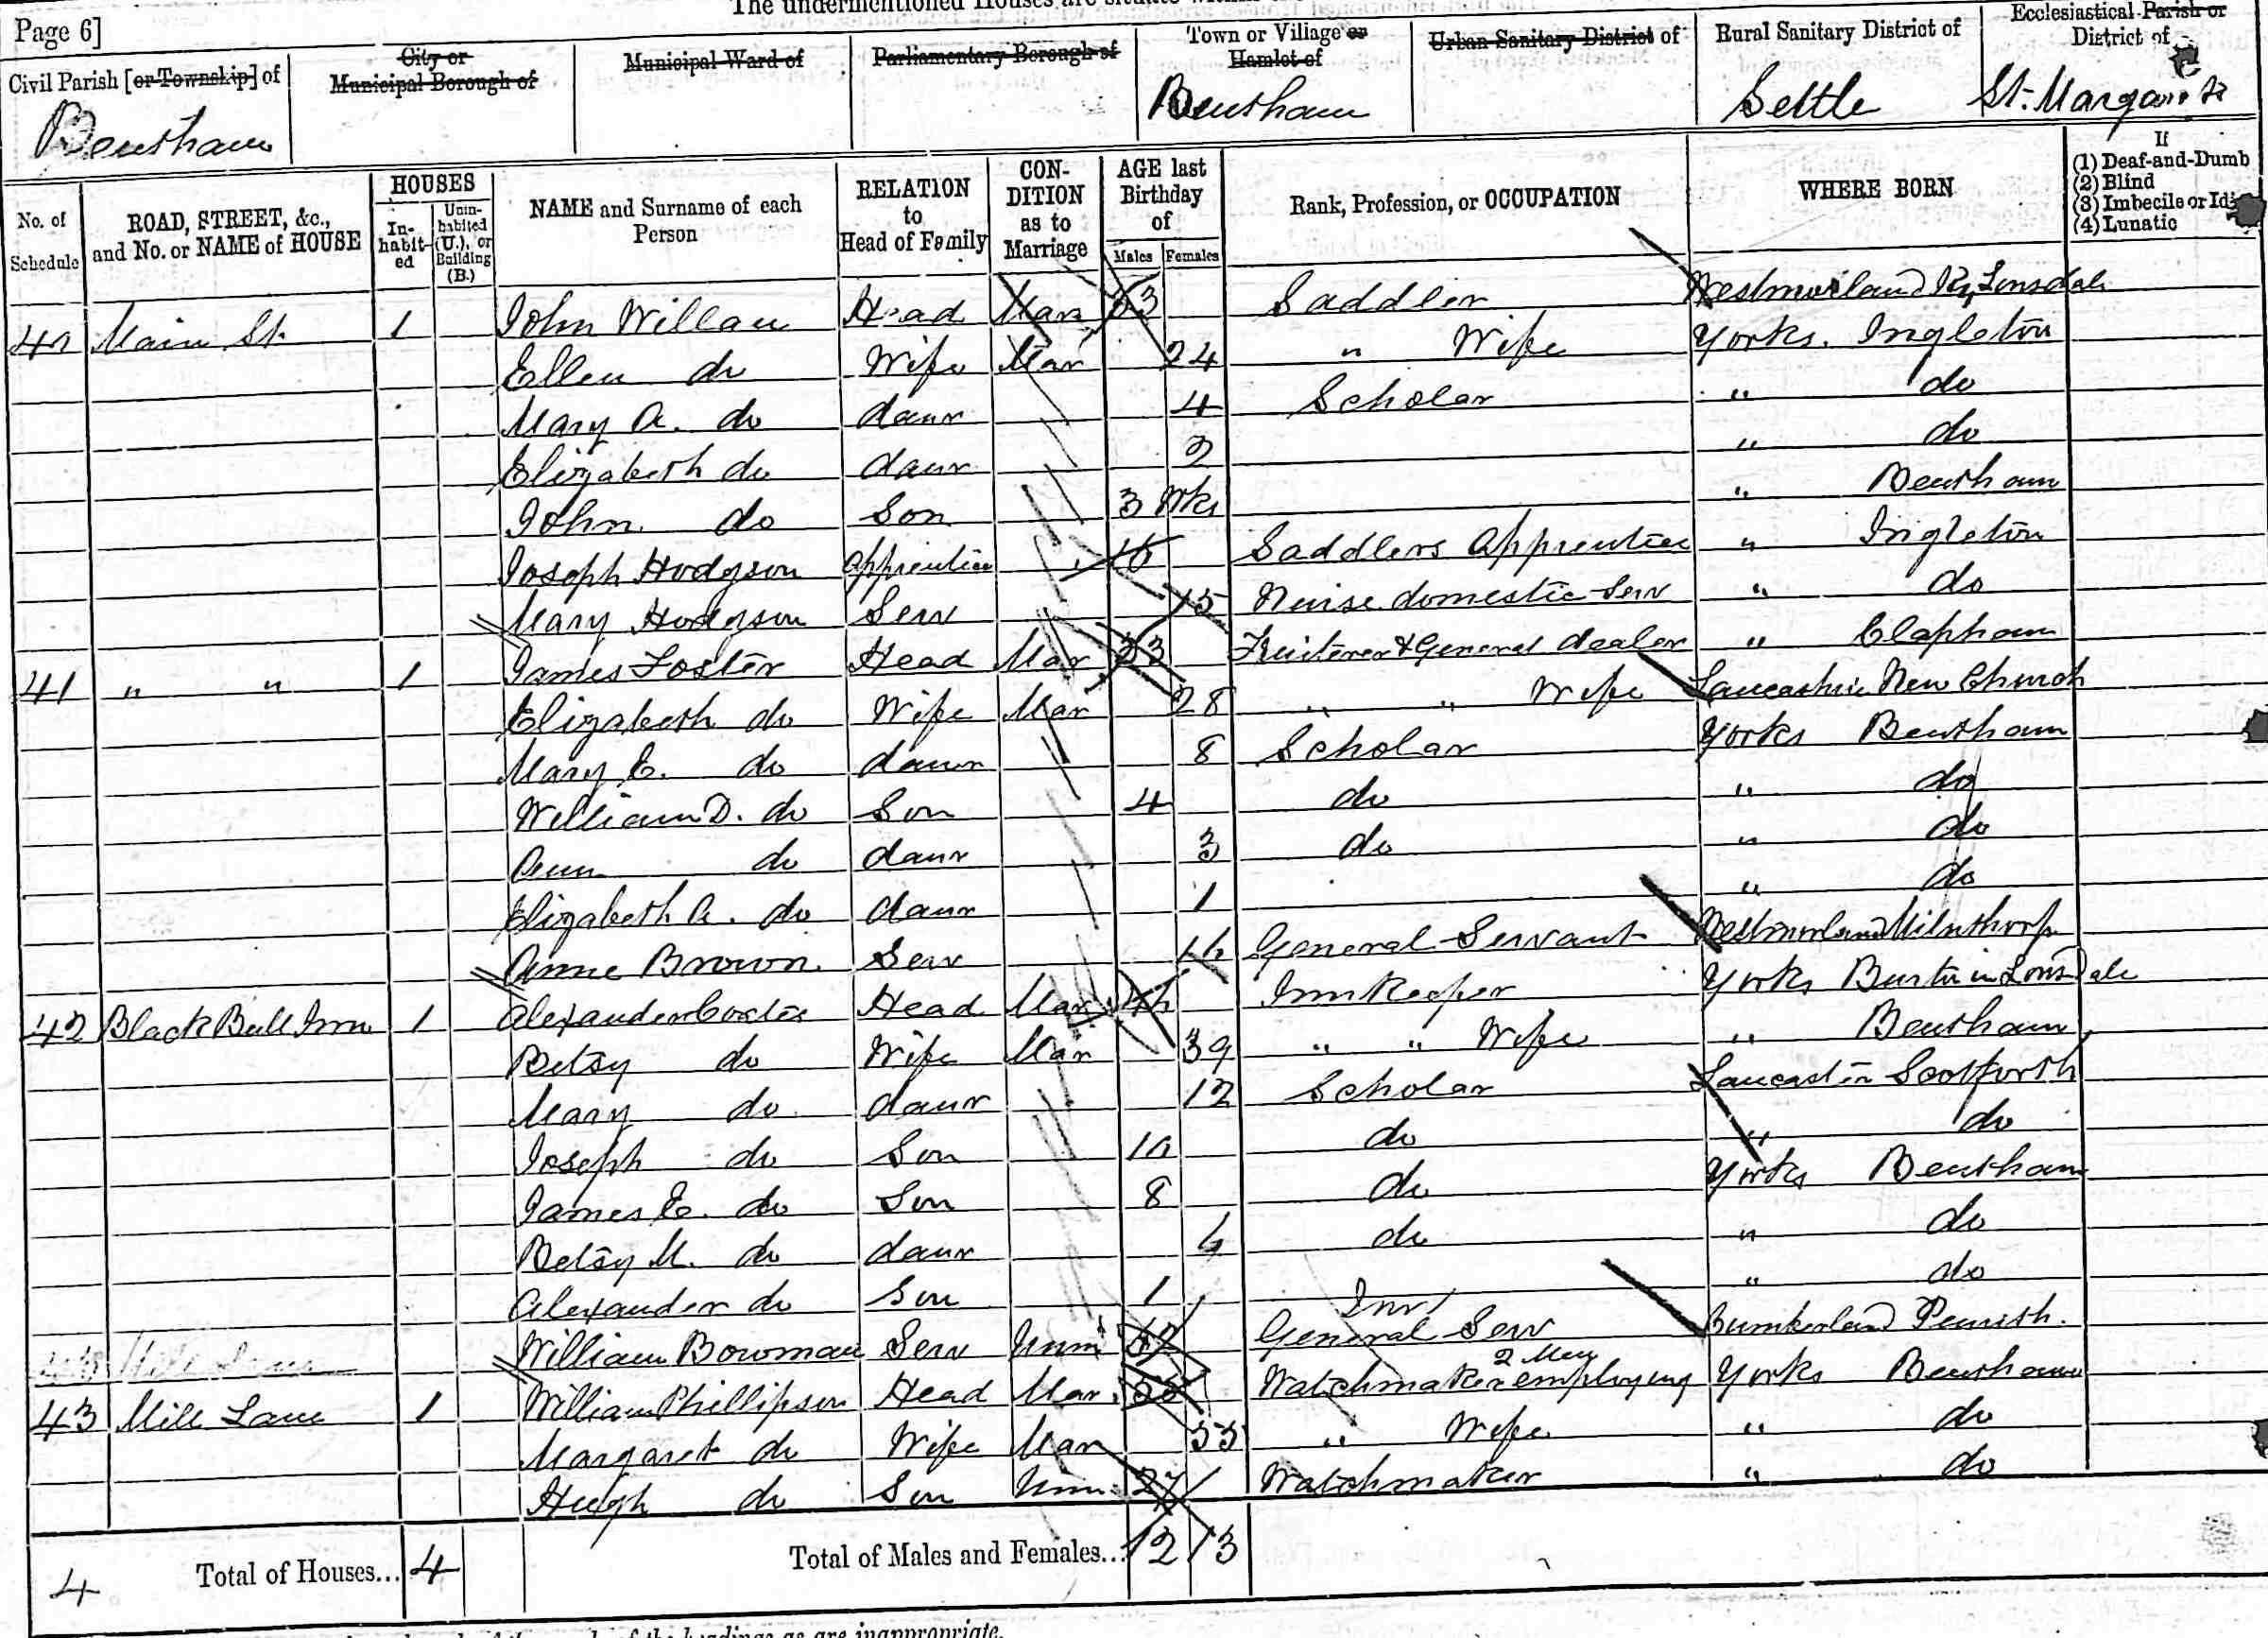 The undermentioned Houses are situate
Page 6]
Civil Parish [or Township] of
Bentham
City or Municipal Borough of
Municipal Ward of
Parliamentary Borough of
Town or Village or Hamlet of
Bentham
Urban Sanitary District of
Rural Sanitary District of
Settle
Ecclesiastical Parish or District of
St. Margarets
No. of Schedule
ROAD, STREET, &c., and No. or NAME of HOUSE
HOUSES
In-habit-ed
Unin-habited (U.), or Building (B.)
NAME and Surname of each Person
RELATION to Head of Family
CON-DITION as to Marriage
AGE last Birthday of
Males Females
Rank, Profession, or OCCUPATION
WHERE BORN
If
(1) Deaf-and-Dumb
(2) Blind
(3) Imbecile or Idi
(4) Lunatic
40 Main St. 1 John Willan Head Mar 33 Saddler Westmorland Ky Lonsdale
Ellen do Wife Mar 24 " Wife Yorks. Ingleton
Mary A. do daur 4 Scholar " do
Elizabeth do daur 2 " do
John do Son 3 Wks " Bentham
Joseph Hodgson Apprentice Saddlers Apprentice " Ingleton
Mary Hodgson Serv 15 Nurse domestic Serv " do
41 " " 1 James Foster Head Mar 33 Fruiterer & General dealer " Clapham
Elizabeth do Wife Mar 28 " " Wife Lancashire New Church
Mary E. do daur 8 Scholar Yorks Bentham
William D. do Son 4 do " do
Ann do daur 3 do " do
Elizabeth A. do daur 1 " do
Anne Brown Serv 16 General Servant Westmorland Milnthorp
42 Black Bull Inn 1 Alexander Head Mar 46 Inn Keeper Yorks Burton in Lonsdale
Betsy do Wife Mar 39 " " Wife " Bentham
Mary do daur 12 Scholar Lancaster Scotforth
Joseph do Son 10 do " do
James E. do Son 8 do Yorks Bentham
Betsy M. do daur 6 do " do
Alexander do Son 1 " do
William Bowman Serv Unm Inn General Serv Cumberland Penrith.
43 Mill Lane 1 William Phillipson Head Mar Watchmaker employing 2 Men Yorks Bentham
Margaret do Wife Mar 55 " Wife " do
Hugh do Son Unm 27 Watchmaker " do
4 Total of Houses... 4 Total of Males and Females... 12 13
of the headings as are inappropriate.